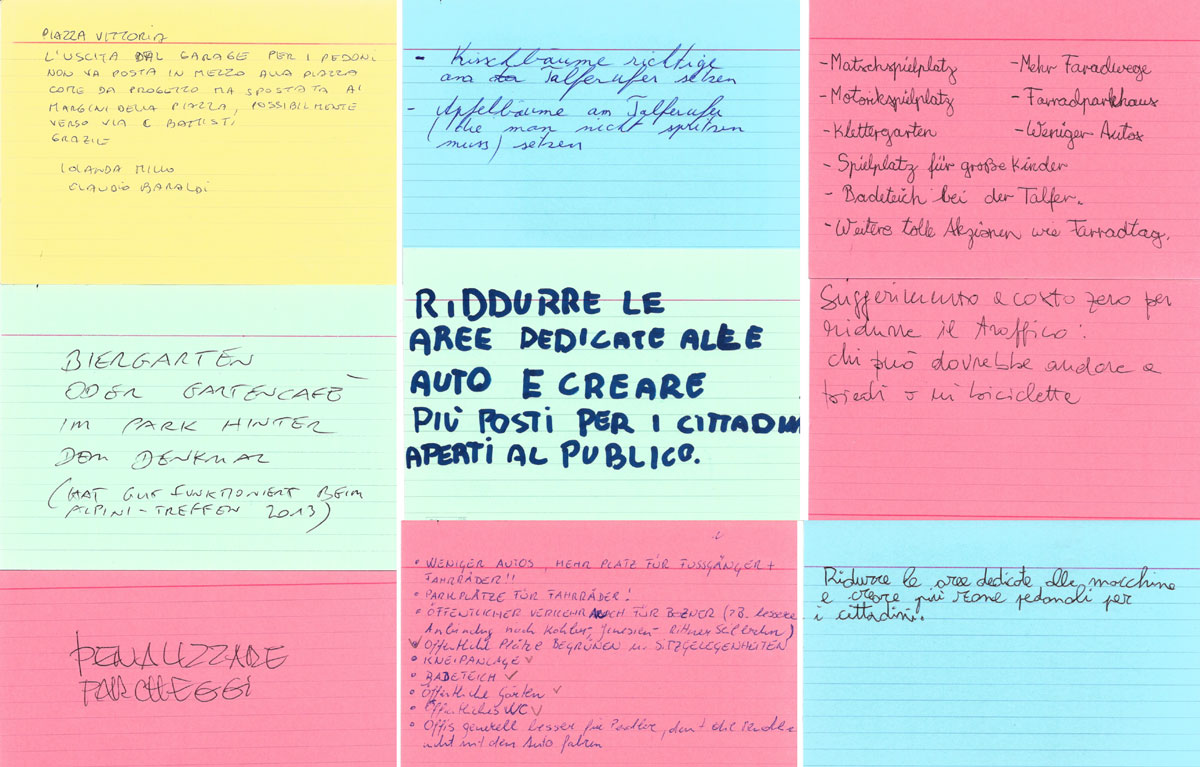 PIAZZA VITTORIA
L'USCITA DAL GARAGE PER I PEDONI
NON VA POSTA IN MEZZO ALLA PIAZZA
COME DA PROGETTO MA SPOSTATA AI
MARGINI DELLA PIAZZA, POSSIBILMENTE
VERSO VIA C BATTISTI
GRAZIE
IOLANDA MILLO
CLAUDIO BARALDI
- Kirschbäume richtige
am Talferufer setzen
- Apfelbäume am Talferufer
(die man nicht spritzen
muss) setzen
- Matschspielplatz
- Motorikspielplatz
- Klettergarten
- Spielplatz für große Kinder
- Badeteich bei der Talfer.
- Weitere tolle Akzionen wie Farradtag.
- Mehr Faradwege
- Farradparkhaus
- Weniger Autos
BIERGARTEN
ODER GARTENCAFÈ
IM PARK HINTER
DEM DENKMAL
(HAT GUT FUNKTIONIERT BEIM
ALPINI-TREFFEN 2013)
RIDDURRE LE
AREE DEDICATE ALLE
AUTO E CREARE
PIÙ POSTI PER I CITTADINI
APERTI AL PUBLICO.
Suggerimento a costo zero per
ridurre il traffico:
chi può dovrebbe andare a
piedi o in bicicletta
PENALIZZARE
PARCHEGGI
• WENIGER AUTOS, MEHR PLATZ FÜR FUSSGÄNGER +
FAHRRÄDER!!
• PARKPLÄTZE FÜR FAHRRÄDER!
• ÖFFENTLICHER VERKEHR AUCH FÜR BOZNER (ZB. bessere
Anbindung nach Kohlern, Jenesien - Rittner Seilbahn)
✓ Öffentliche Plätze BEGRÜNEN u. SITZGELEGENHEITEN
• KNEIPANLAGE ✓
• BADETEICH ✓
• Öffentliche Gärten ✓
• Öffentliches WC ✓
• Öffis generell besser für Pendler, damit die Pendler
nicht mit dem Auto fahren
Ridurre le aree dedicate alle macchine
e creare più zone pedonali per
i cittadini.